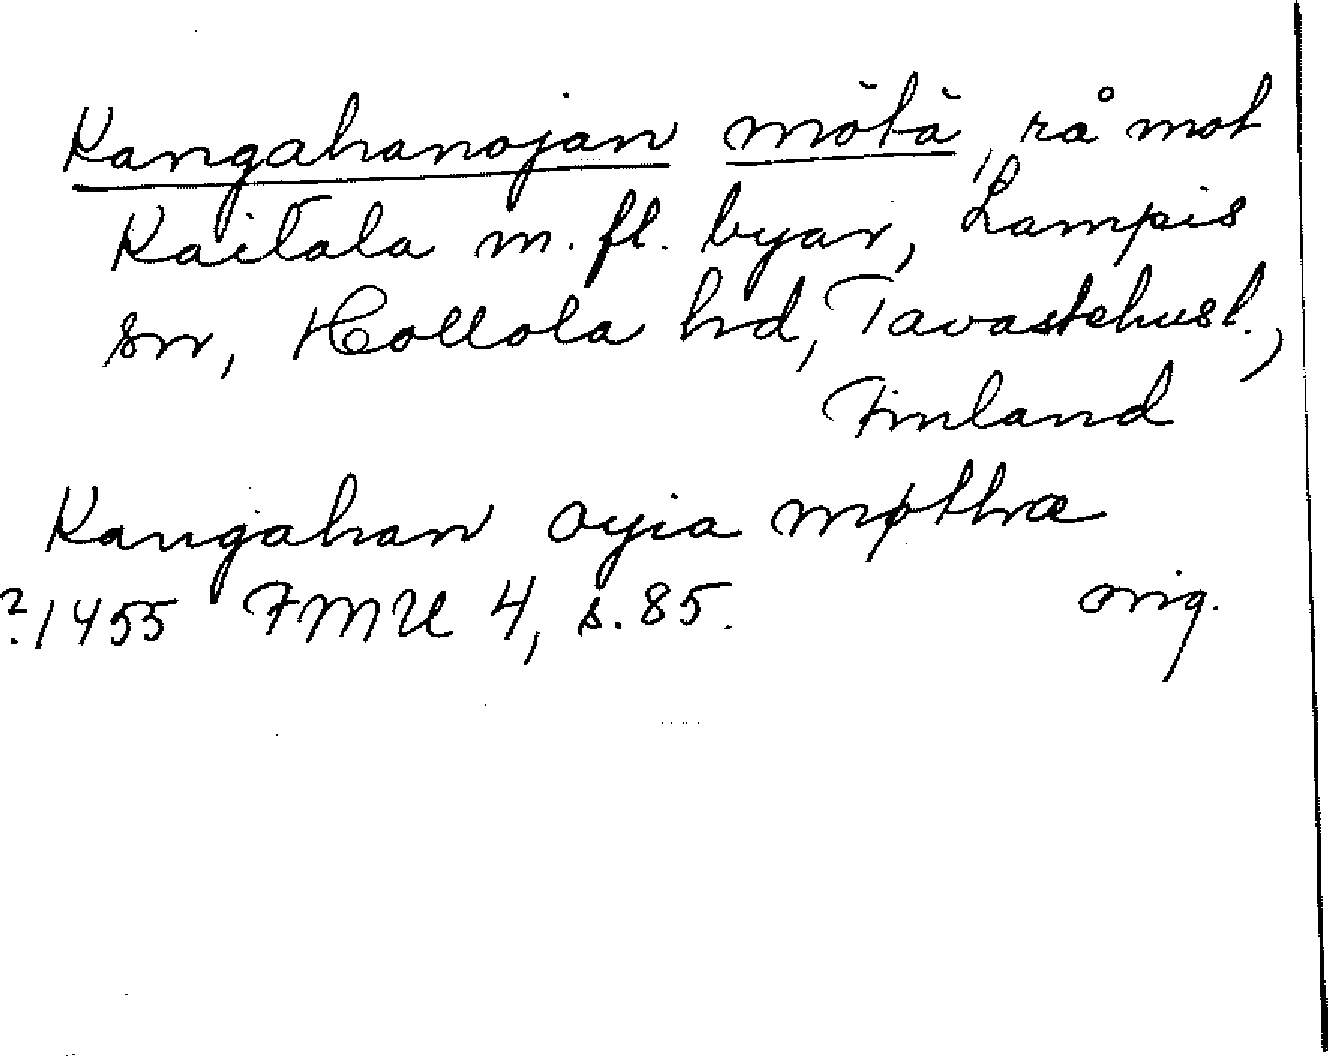 Kangahanojan mötä, rå mot
Kaitala m. fl. byar, Lampis
sn, Hollola hd, Tavastehusl.,
Finland
Kangahan oyia møthræ
?1455 FMU 4, s. 85. orig.